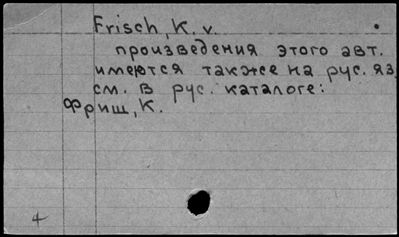 Frisch, K. v.
произведения этого авт.
имеются также на рус. яз,
см. в рус. каталоге:
Фриш, К.
4